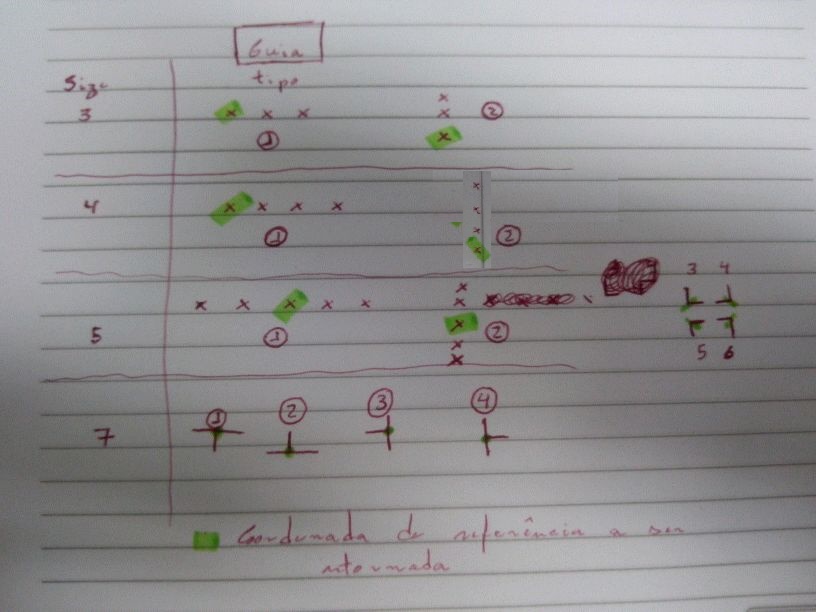 Guia
Size tipo
3 x x x ① x x x ②
4 x x x x ① x x x x ②
5 x x x x x ① x x x x x ②
3 4
5 6
7 ① ② ③ ④
Coordenada de referência a ser
retornada